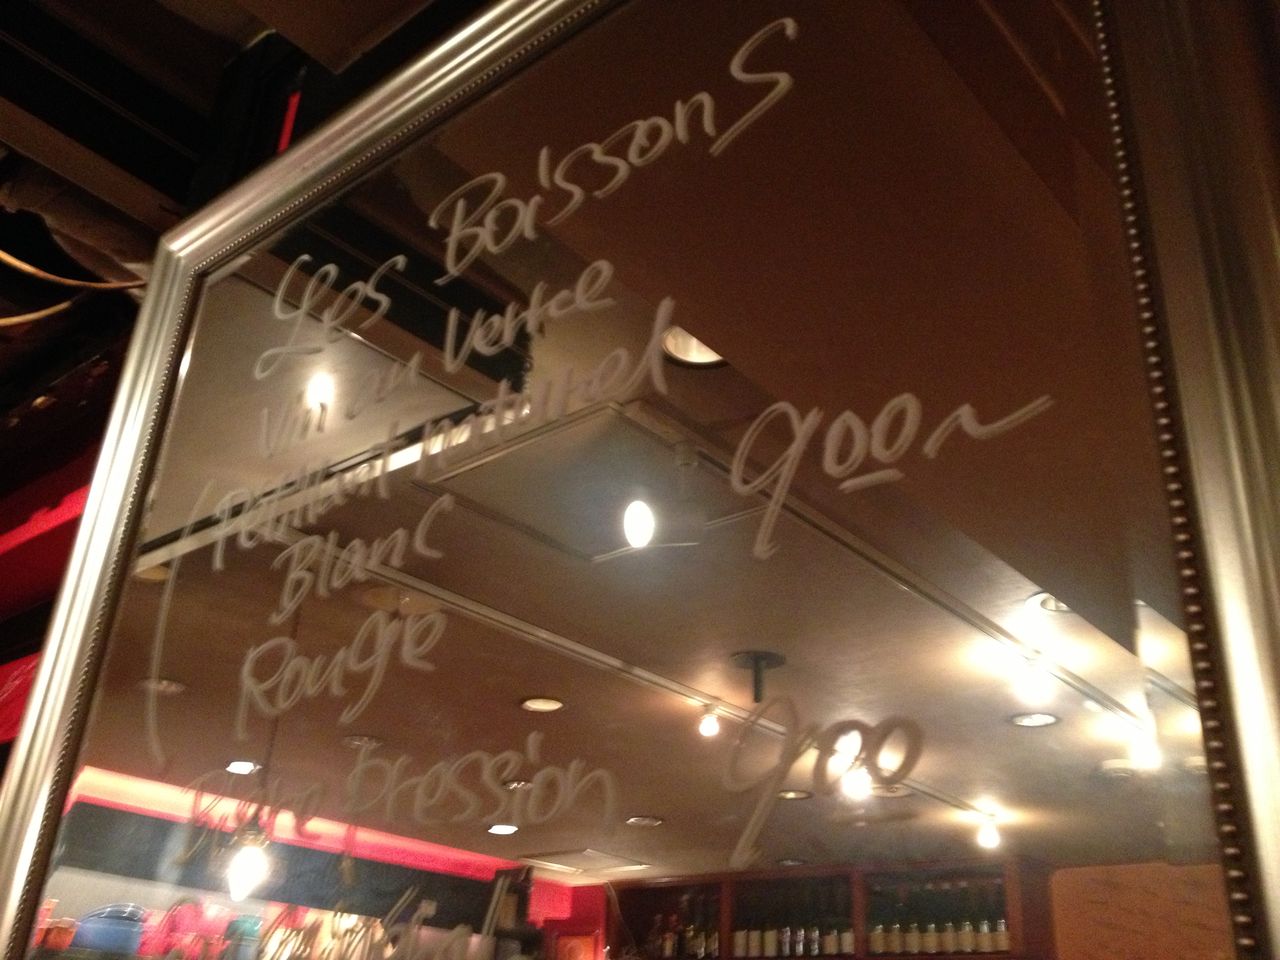 Les Boissons
Vin au Verre
Petillant naturel 900~
Blanc
Rouge
pression 900